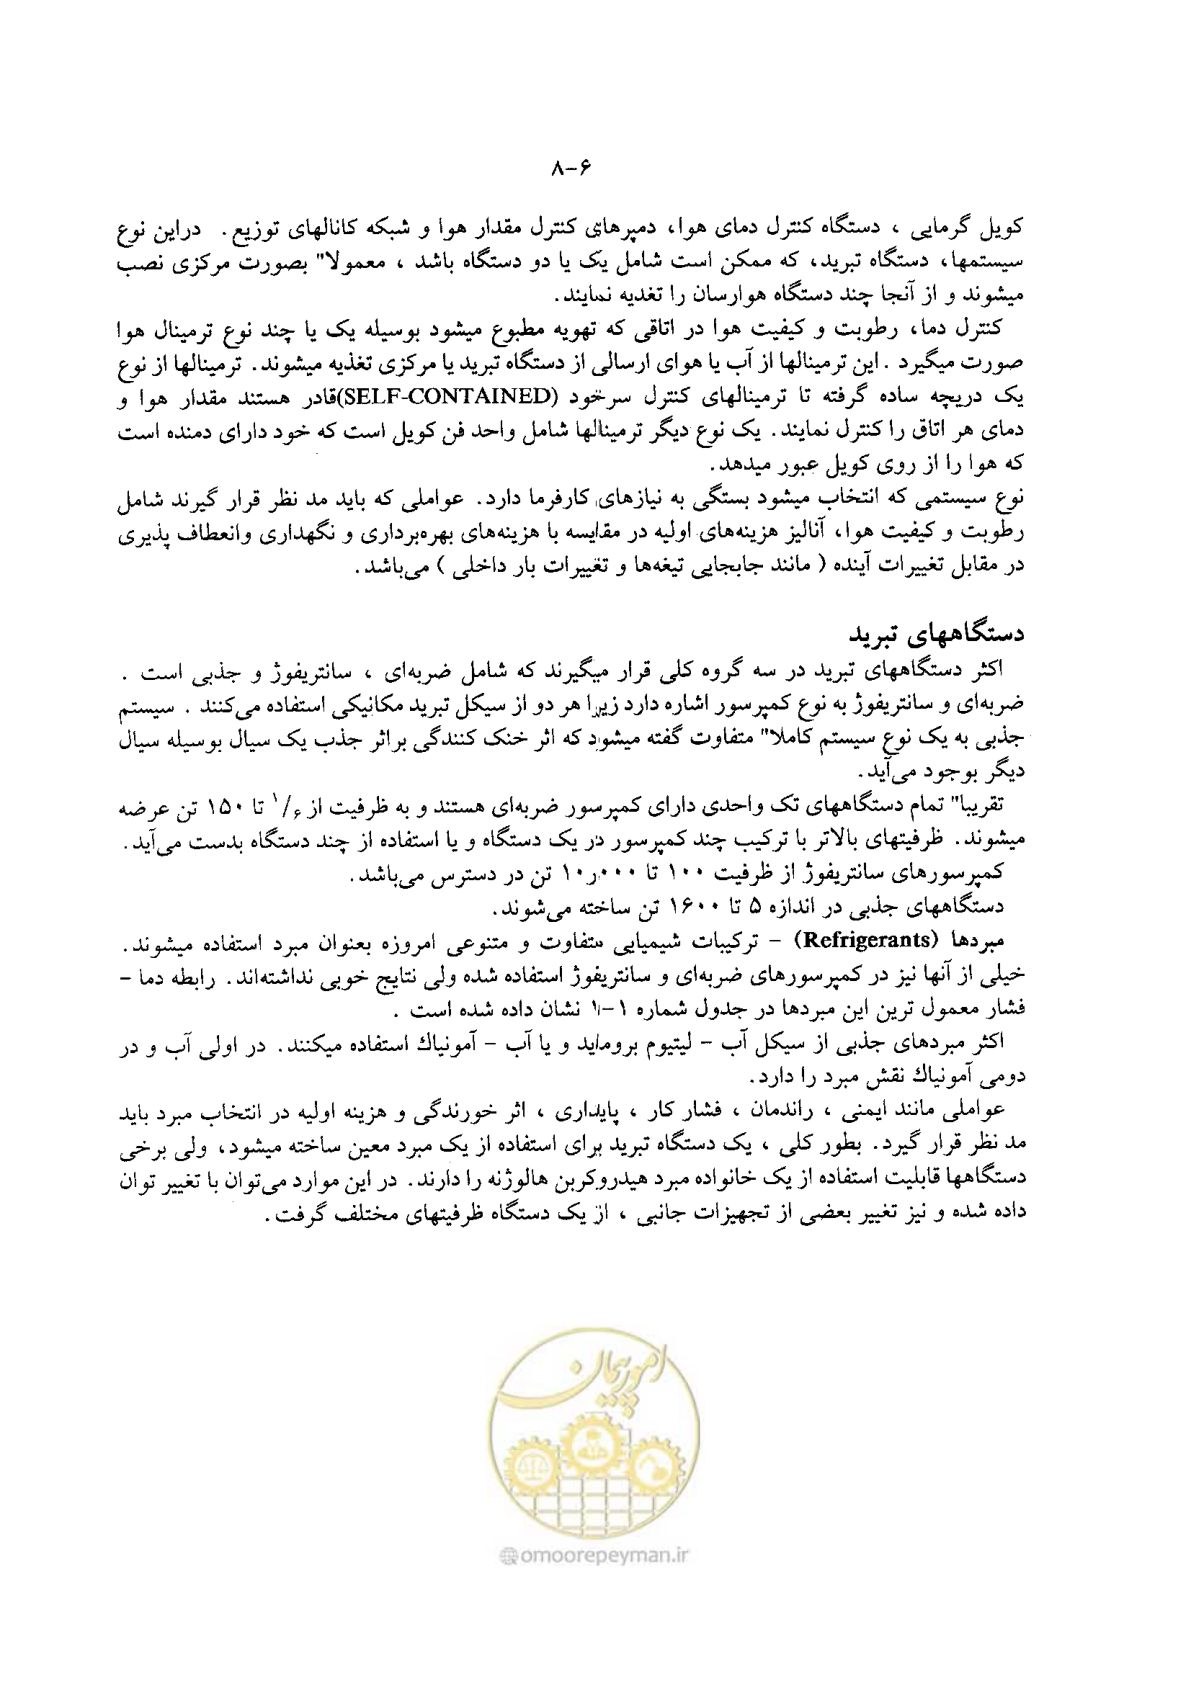 ۸-۶
کویل گرمایی ، دستگاه کنترل دمای هوا، دمپرهای کنترل مقدار هوا و شبکه کانالهای توزیع. دراین نوع
سیستمها، دستگاه تبرید، که ممکن است شامل یک یا دو دستگاه باشد ، معمولا" بصورت مرکزی نصب
میشوند و از آنجا چند دستگاه هوارسان را تغدیه نمایند.
کنترل دما، رطوبت و کیفیت هوا در اتاقی که تهویه مطبوع میشود بوسیله یک یا چند نوع ترمینال هوا
صورت میگیرد . این ترمینالها از آب یا هوای ارسالی از دستگاه تبرید یا مرکزی تغذیه میشوند. ترمینالها از نوع
یک دریچه ساده گرفته تا ترمینالهای کنترل سرخود (SELF-CONTAINED)قادر هستند مقدار هوا و
دمای هر اتاق را کنترل نمایند. یک نوع دیگر ترمینالها شامل واحد فن کویل است که خود دارای دمنده است
که هوا را از روی کویل عبور میدهد.
نوع سیستمی که انتخاب میشود بستگی به نیازهای کارفرما دارد. عواملی که باید مد نظر قرار گیرند شامل
رطوبت و کیفیت هوا، آنالیز هزینه‌های اولیه در مقایسه با هزینه‌های بهره‌برداری و نگهداری وانعطاف پذیری
در مقابل تغییرات آینده ( مانند جابجایی تیغه‌ها و تغییرات بار داخلی ) می‌باشد.
دستگاههای تبرید
اکثر دستگاههای تبرید در سه گروه کلی قرار میگیرند که شامل ضربه‌ای ، سانتریفوژ و جذبی است .
ضربه‌ای و سانتریفوژ به نوع کمپرسور اشاره دارد زیرا هر دو از سیکل تبرید مکانیکی استفاده می‌کنند . سیستم
جذبی به یک نوع سیستم کاملا" متفاوت گفته میشود که اثر خنک کنندگی براثر جذب یک سیال بوسیله سیال
دیگر بوجود می‌آید.
تقریبا" تمام دستگاههای تک واحدی دارای کمپرسور ضربه‌ای هستند و به ظرفیت از تا ۱۵۰ تن عرضه
میشوند. ظرفیتهای بالاتر با ترکیب چند کمپرسور در یک دستگاه و یا استفاده از چند دستگاه بدست می‌آید.
کمپرسورهای سانتریفوژ از ظرفیت ۱۰۰ تا ۱۰ر۰۰۰ تن در دسترس می‌باشد.
دستگاههای جذبی در اندازه ۵ تا ۱۶۰۰ تن ساخته می‌شوند.
مبردها (Refrigerants) - ترکیبات شیمیایی متفاوت و متنوعی امروزه بعنوان مبرد استفاده میشوند.
خیلی از آنها نیز در کمپرسورهای ضربه‌ای و سانتریفوژ استفاده شده ولی نتایج خوبی نداشته‌اند. رابطه دما -
فشار معمول ترین این مبردها در جدول شماره ۱-۱ نشان داده شده است .
اکثر مبردهای جذبی از سیکل آب - لیتیوم بروماید و یا آب - آمونیاك استفاده میکنند. در اولی آب و در
دومی آمونیاك نقش مبرد را دارد.
عواملی مانند ایمنی ، راندمان ، فشار کار ، پایداری ، اثر خورندگی و هزینه اولیه در انتخاب مبرد باید
مد نظر قرار گیرد. بطور کلی ، یک دستگاه تبرید برای استفاده از یک مبرد معین ساخته میشود، ولی برخی
دستگاهها قابلیت استفاده از یک خانواده مبرد هیدروکربن هالوژنه را دارند. در این موارد می‌توان با تغییر توان
داده شده و نیز تغییر بعضی از تجهیزات جانبی ، از یک دستگاه ظرفیتهای مختلف گرفت.
امور پیمان
omoorepeyman.ir